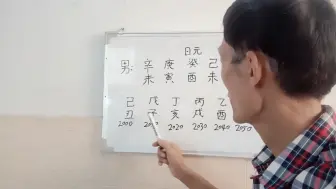 日元
男: 辛 庚 癸 己
未 寅 酉 未
己 戊 丁 丙 乙
丑 子 亥 戌 酉
2000 20 2020 2030 2040 2050